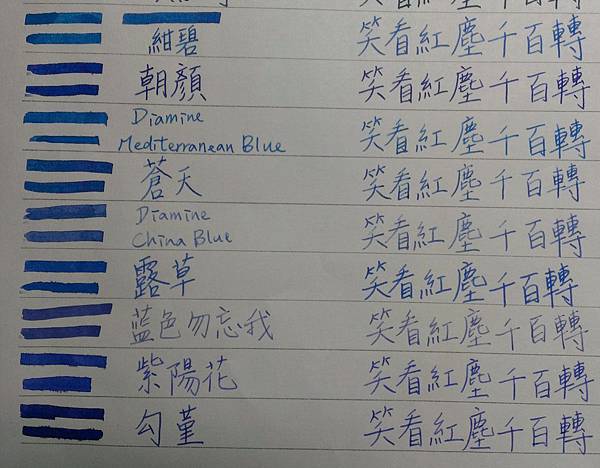 紺碧 笑看紅塵千百轉
朝顏 笑看紅塵千百轉
Diamine
Mediterranean Blue 笑看紅塵千百轉
蒼天 笑看紅塵千百轉
Diamine
China Blue 笑看紅塵千百轉
露草 笑看紅塵千百轉
蓝色勿忘我 笑看紅塵千百轉
紫陽花 笑看紅塵千百轉
勾堇 笑看紅塵千百轉